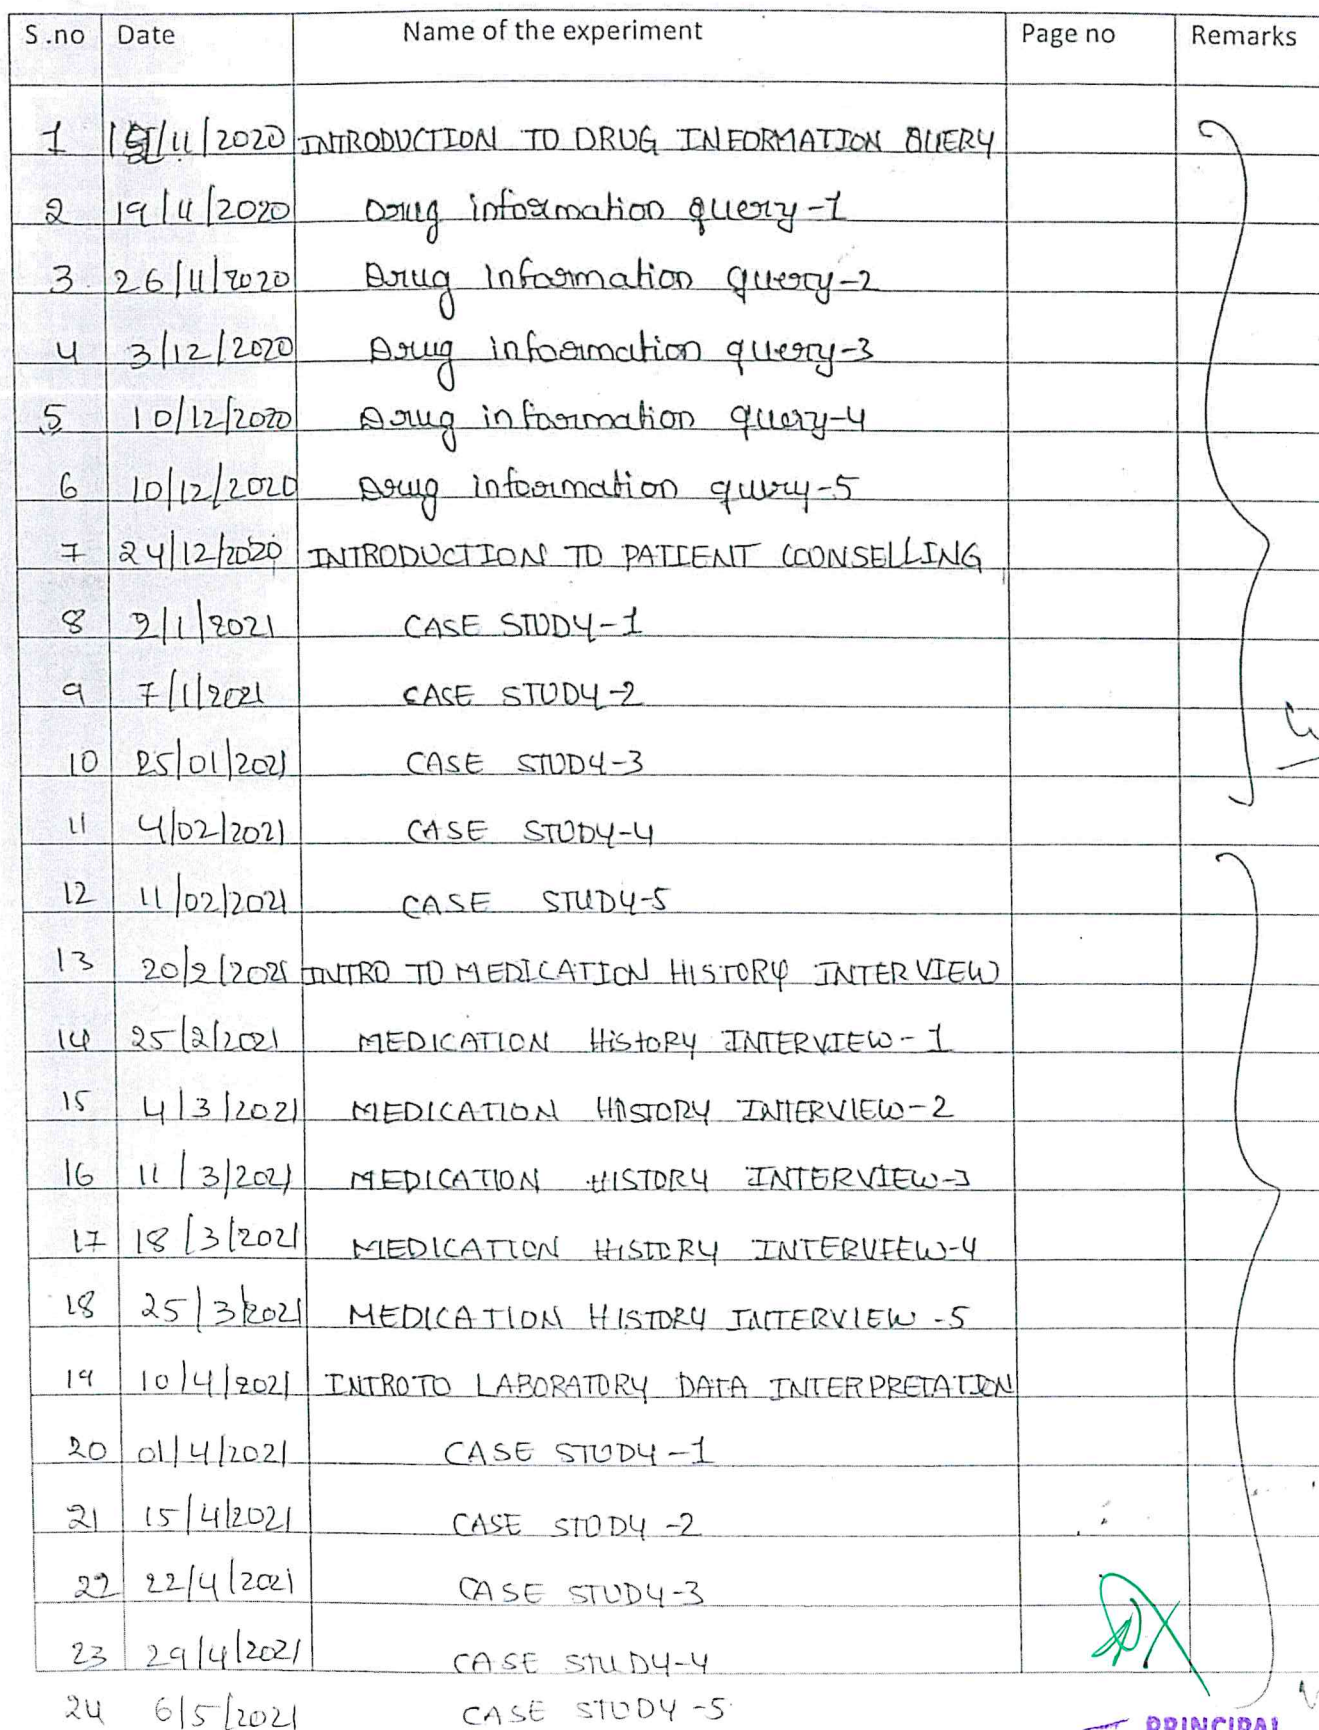 S.no Date Name of the experiment Page no Remarks
1 /11/2020 INTRODUCTION TO DRUG INFORMATION QUERY
2 19/11/2020 Drug information query-1
3 26/11/2020 Drug information query-2
4 3/12/2020 Drug information query-3
5 10/12/2020 Drug information query-4
6 10/12/2020 Drug information query-5
7 24/12/2020 INTRODUCTION TO PATIENT COUNSELLING
8 2/1/2021 CASE STUDY-1
9 7/1/2021 CASE STUDY-2
10 25/01/2021 CASE STUDY-3
11 4/02/2021 CASE STUDY-4
12 11/02/2021 CASE STUDY-5
13 20/2/2021 INTRO TO MEDICATION HISTORY INTERVIEW
14 25/2/2021 MEDICATION HISTORY INTERVIEW-1
15 4/3/2021 MEDICATION HISTORY INTERVIEW-2
16 11/3/2021 MEDICATION HISTORY INTERVIEW-3
17 18/3/2021 MEDICATION HISTORY INTERVIEW-4
18 25/3/2021 MEDICATION HISTORY INTERVIEW-5
19 10/4/2021 INTRO TO LABORATORY DATA INTERPRETATION
20 01/4/2021 CASE STUDY-1
21 15/4/2021 CASE STUDY-2
22 22/4/2021 CASE STUDY-3
23 29/4/2021 CASE STUDY-4
24 6/5/2021 CASE STUDY-5
PRINCIPAL